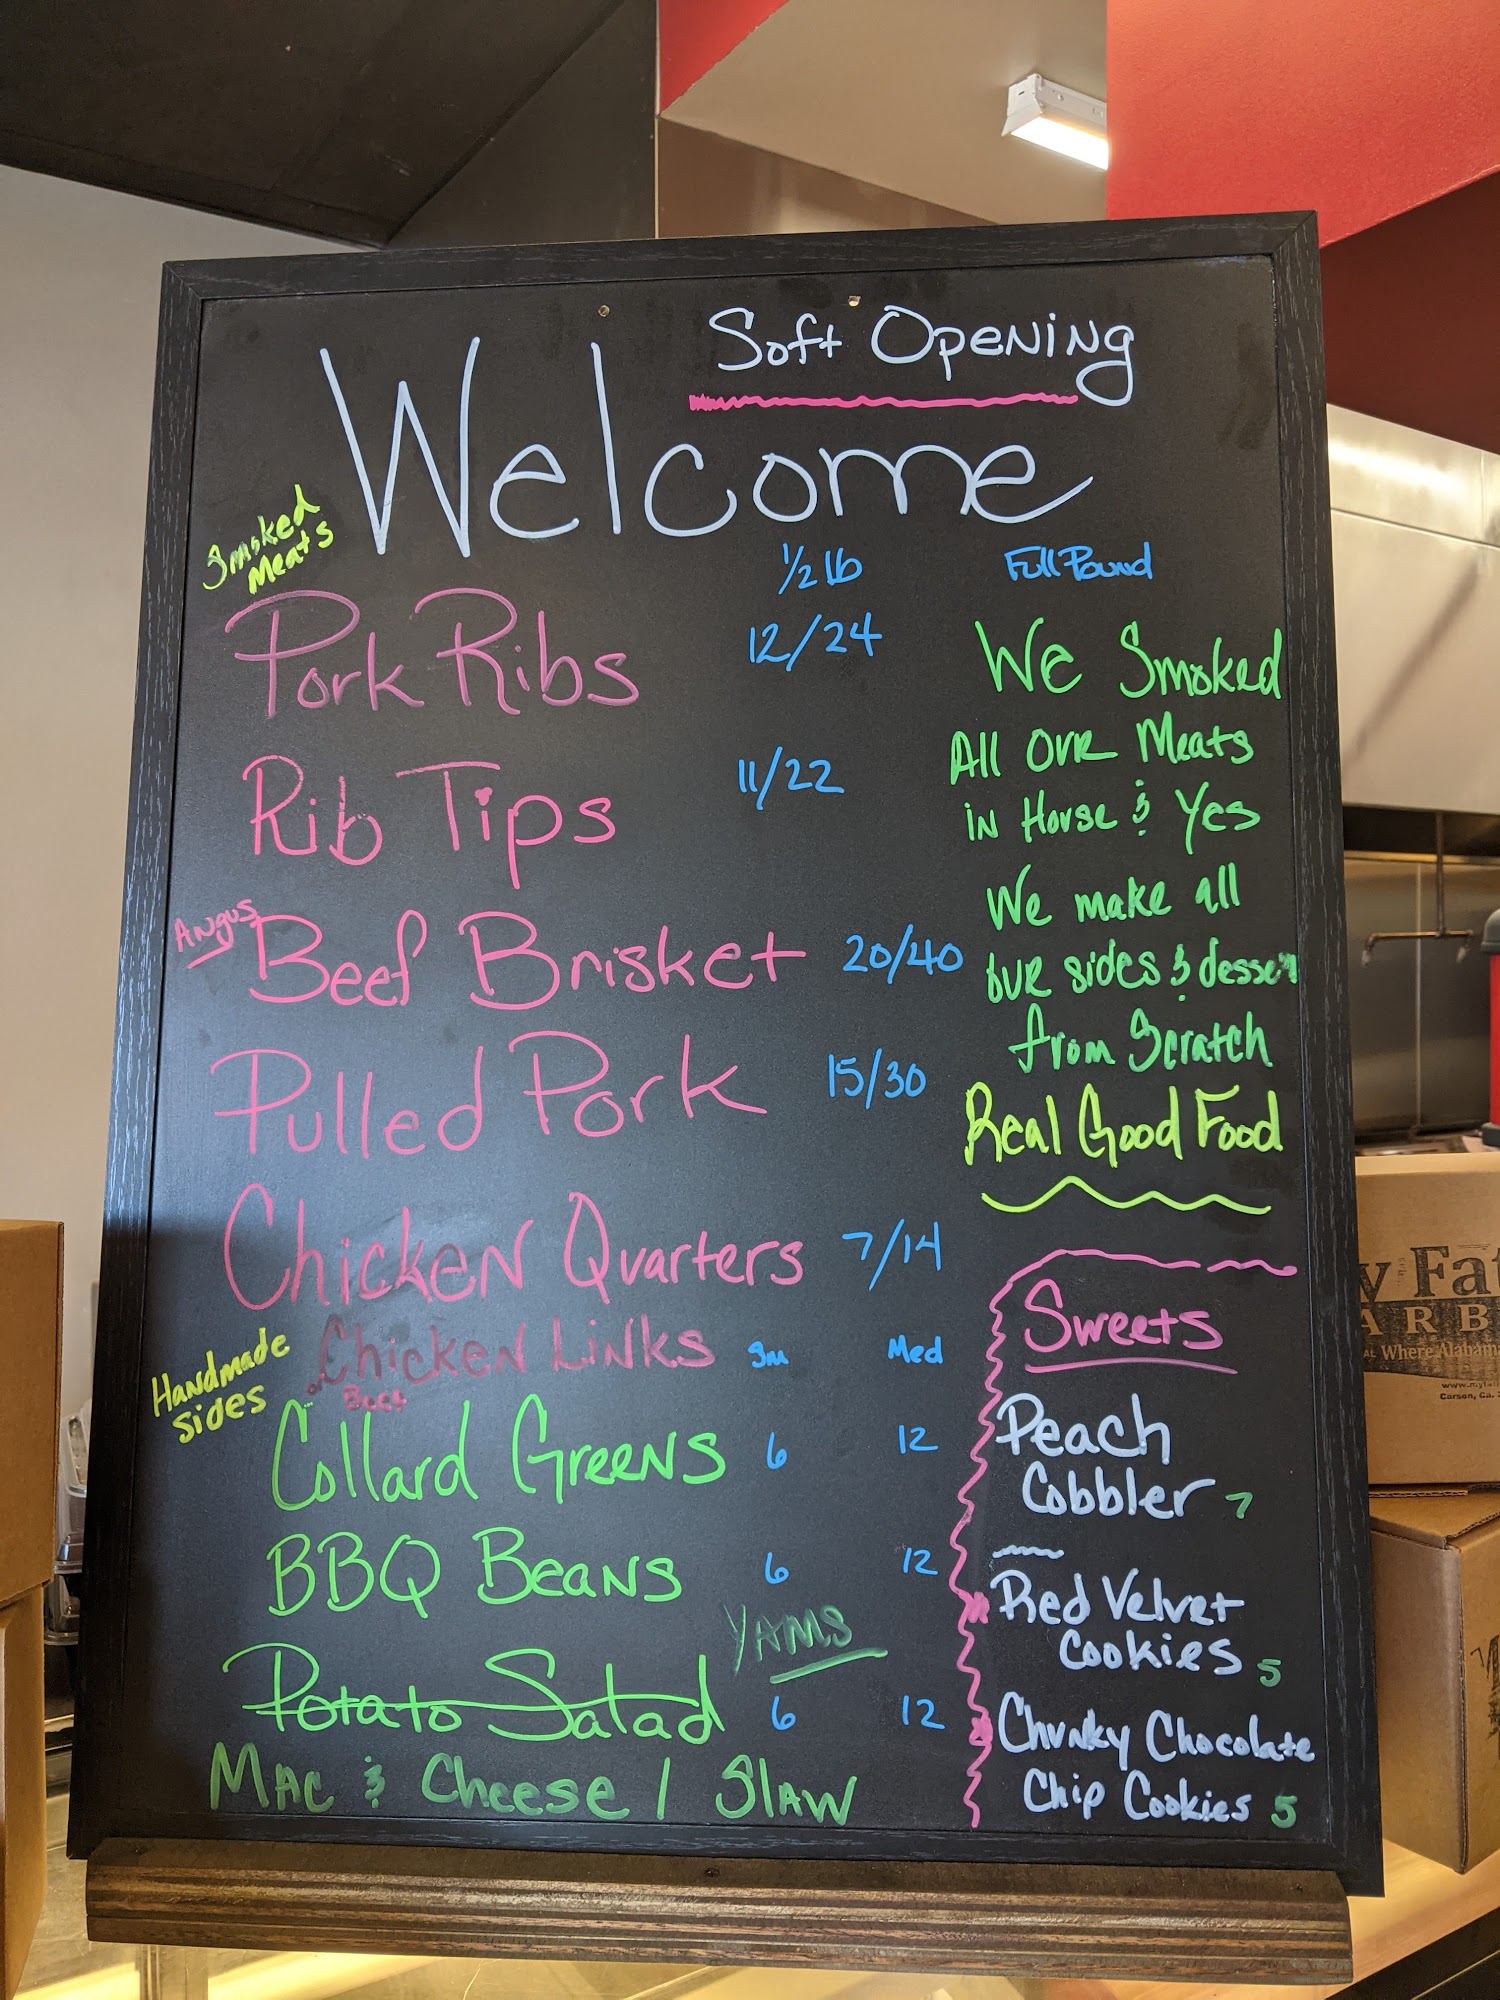 Soft Opening
Welcome
Smoked
Meats
1/2 lb Full Pound
Pork Ribs 12/24
Rib Tips 11/22
Angus
Beef Brisket 20/40
Pulled Pork 15/30
Chicken Quarters 7/14
Chicken Links
or Beef
We Smoked
All our Meats
in House & Yes
We make all
our sides & dessert
from Scratch
Real Good Food
Handmade
sides
Sm Med
Collard Greens 6 12
BBQ Beans 6 12
YAMS
Potato Salad 6 12
Mac & Cheese / Slaw
Sweets
Peach
Cobbler 7
Red Velvet
Cookies 5
Chunky Chocolate
Chip Cookies 5
y Fat
ARB
AL Where Alabama
Carson, Ca.